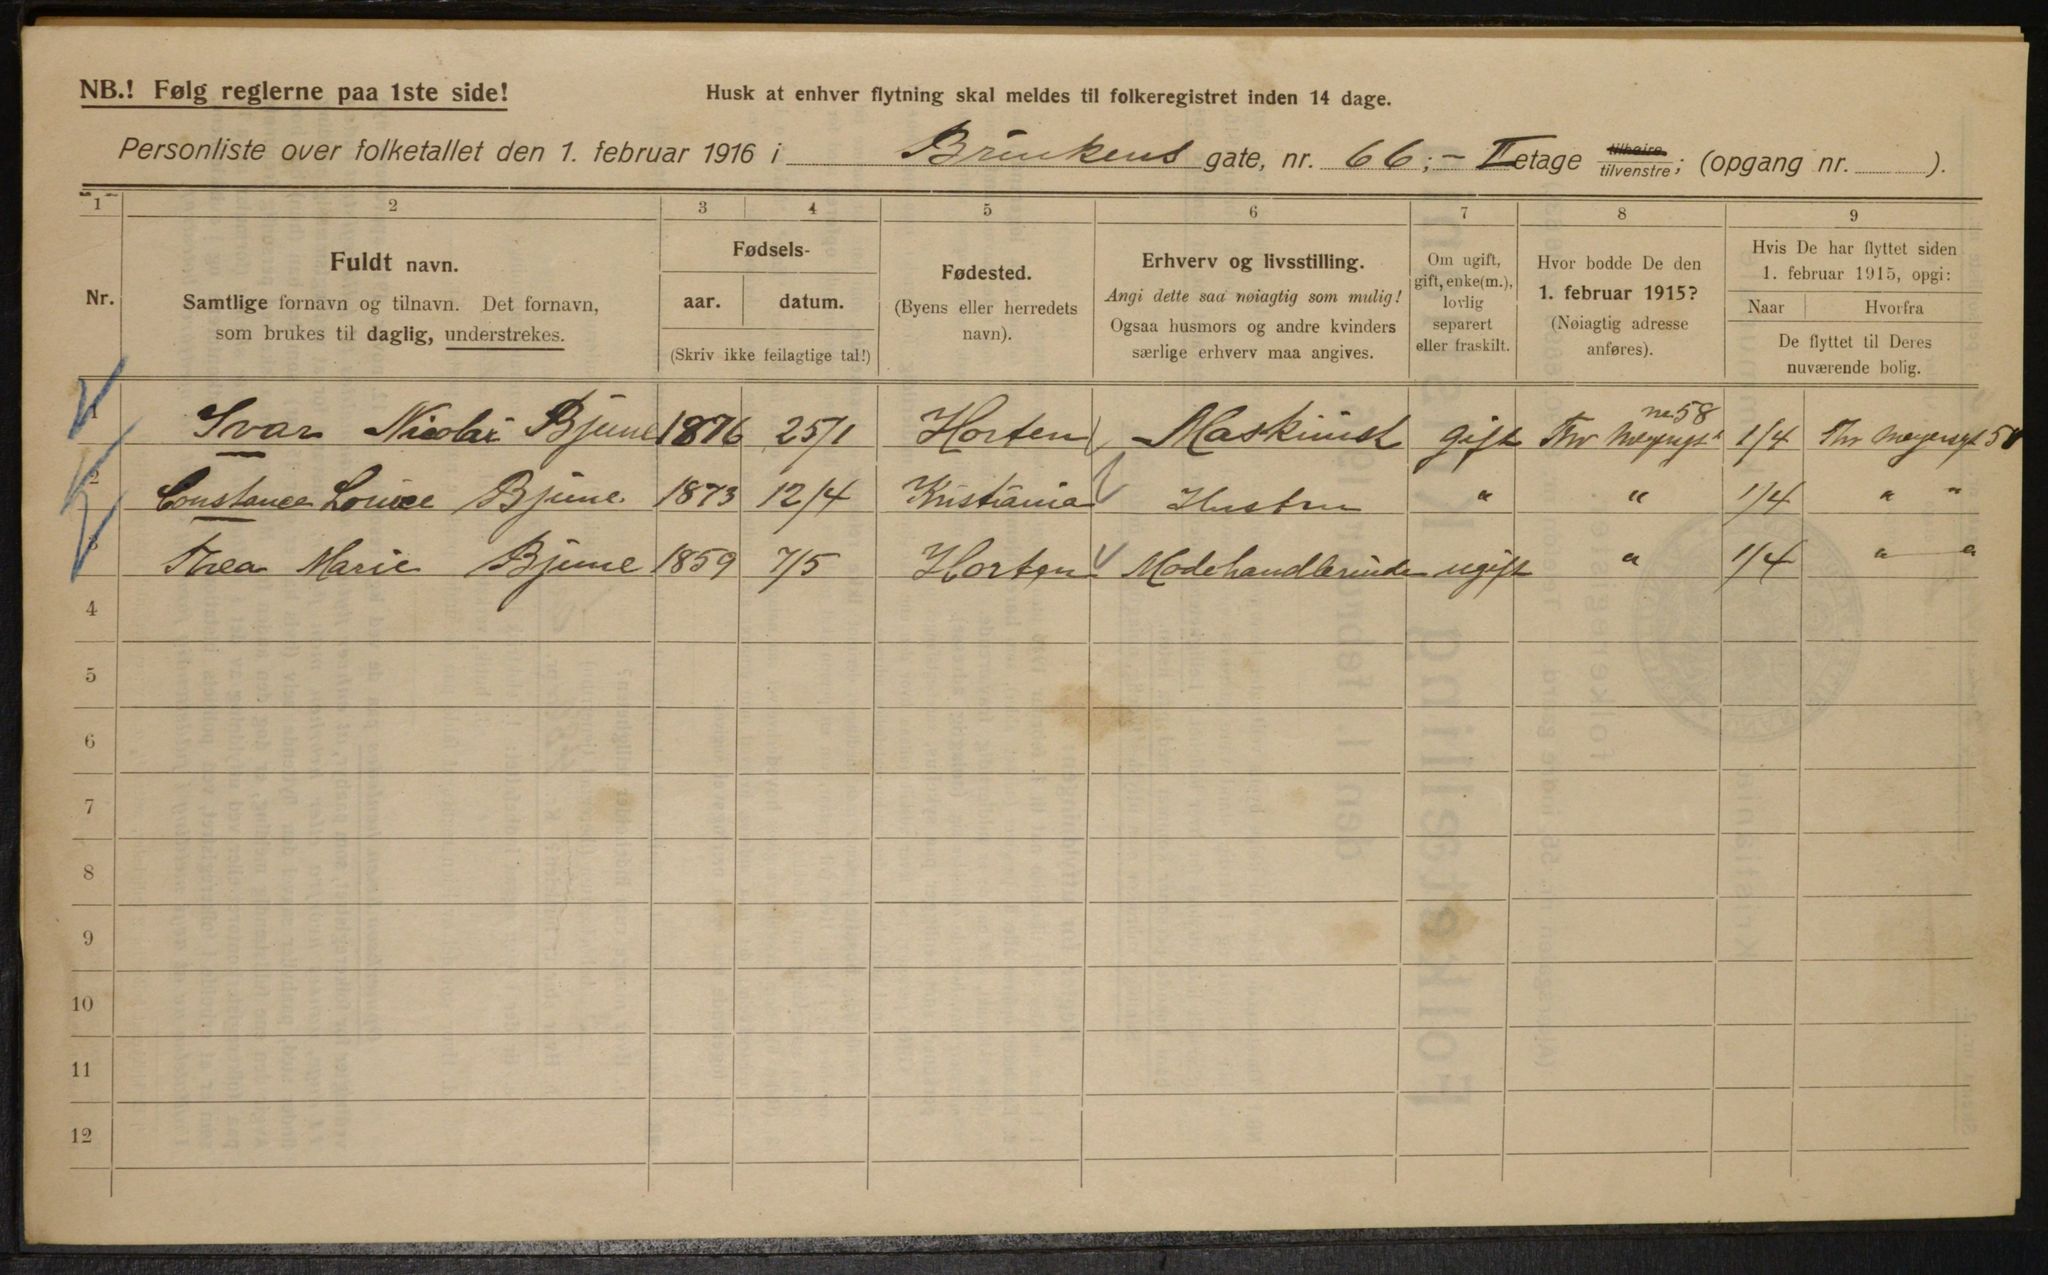 NB.! Følg reglerne paa 1ste side!
Husk at enhver flytning skal meldes til folkeregistret inden 14 dage.
Personliste over folketallet den 1. februar 1916 i Brinkens gate, nr. 66; - II etage tilhøire tilvenstre; (opgang nr. ).
1 2 3 4 5 6 7 8 9
Nr.
Fuldt navn.
Samtlige fornavn og tilnavn. Det fornavn,
som brukes til daglig, understrekes.
Fødsels-
aar. datum.
(Skriv ikke feilagtige tal!)
Fødested.
(Byens eller herredets
navn).
Erhverv og livsstilling.
Angi dette saa nøiagtig som mulig!
Ogsaa husmors og andre kvinders
særlige erhverv maa angives.
Om ugift,
gift, enke(m.),
lovlig
separert
eller fraskilt.
Hvor bodde De den
1. februar 1915?
(Nøiagtig adresse
anføres).
Hvis De har flyttet siden
1. februar 1915, opgi:
Naar Hvorfra
De flyttet til Deres
nuværende bolig.
1 Ivar Nicolai Bjune 1876 25/1 Horten Maskinist gift Thv Meyersgt nr. 58 1/4 Thv Meyersgt 58
2 Constance Louice Bjune. 1873 12/4 Kristiania Hustru " " 1/4 " "
3 Thea Marie Bjune 1859 7/5 Horten Modehandlerinde ugift " 1/4 " "
4
5
6
7
8
9
10
11
12